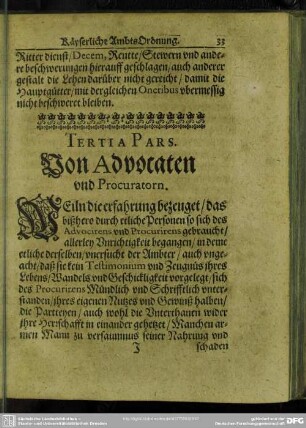 Käyserliche Ambts Ordnung. 33
Ritter dienst/ Decem, Rentte/ Stewern vnd ande-
re beschwerungen hierauff geschlagen/ auch anderer
gestalt die Lehen darüber nicht gereicht/ damit die
Hauptgütter/ mit dergleichen Oneribus vbermessig
nicht beschweret bleiben.
TERTIA PARS.
Von Advocaten
vnd Procuratorn.
WEiln die erfahrung bezeuget/ das
bißhero durch etliche Personen so sich des
Advocirens vnd Procurirens gebraucht/
allerley Vnrichtigkeit begangen/ in deme
etliche derselben/ vnersucht der Ambter/ auch vnge-
acht/ daß sie kein Testimonium vnd Zeugnüs ihres
Lebens/ Wandels vnd Geschickligkeit vorgelegt, sich
des Procurirens Mündlich vnd Schrifftlich vnter-
standen/ ihres eigenen Nutzes vnd Gewinß halben/
die Parteyen/ auch wohl die Vnterthanen wider
ihre Herschafft in einander gehetzet/ Manchen ar-
men Mann zu versaumnus seiner Nahrung vnd
J schaden